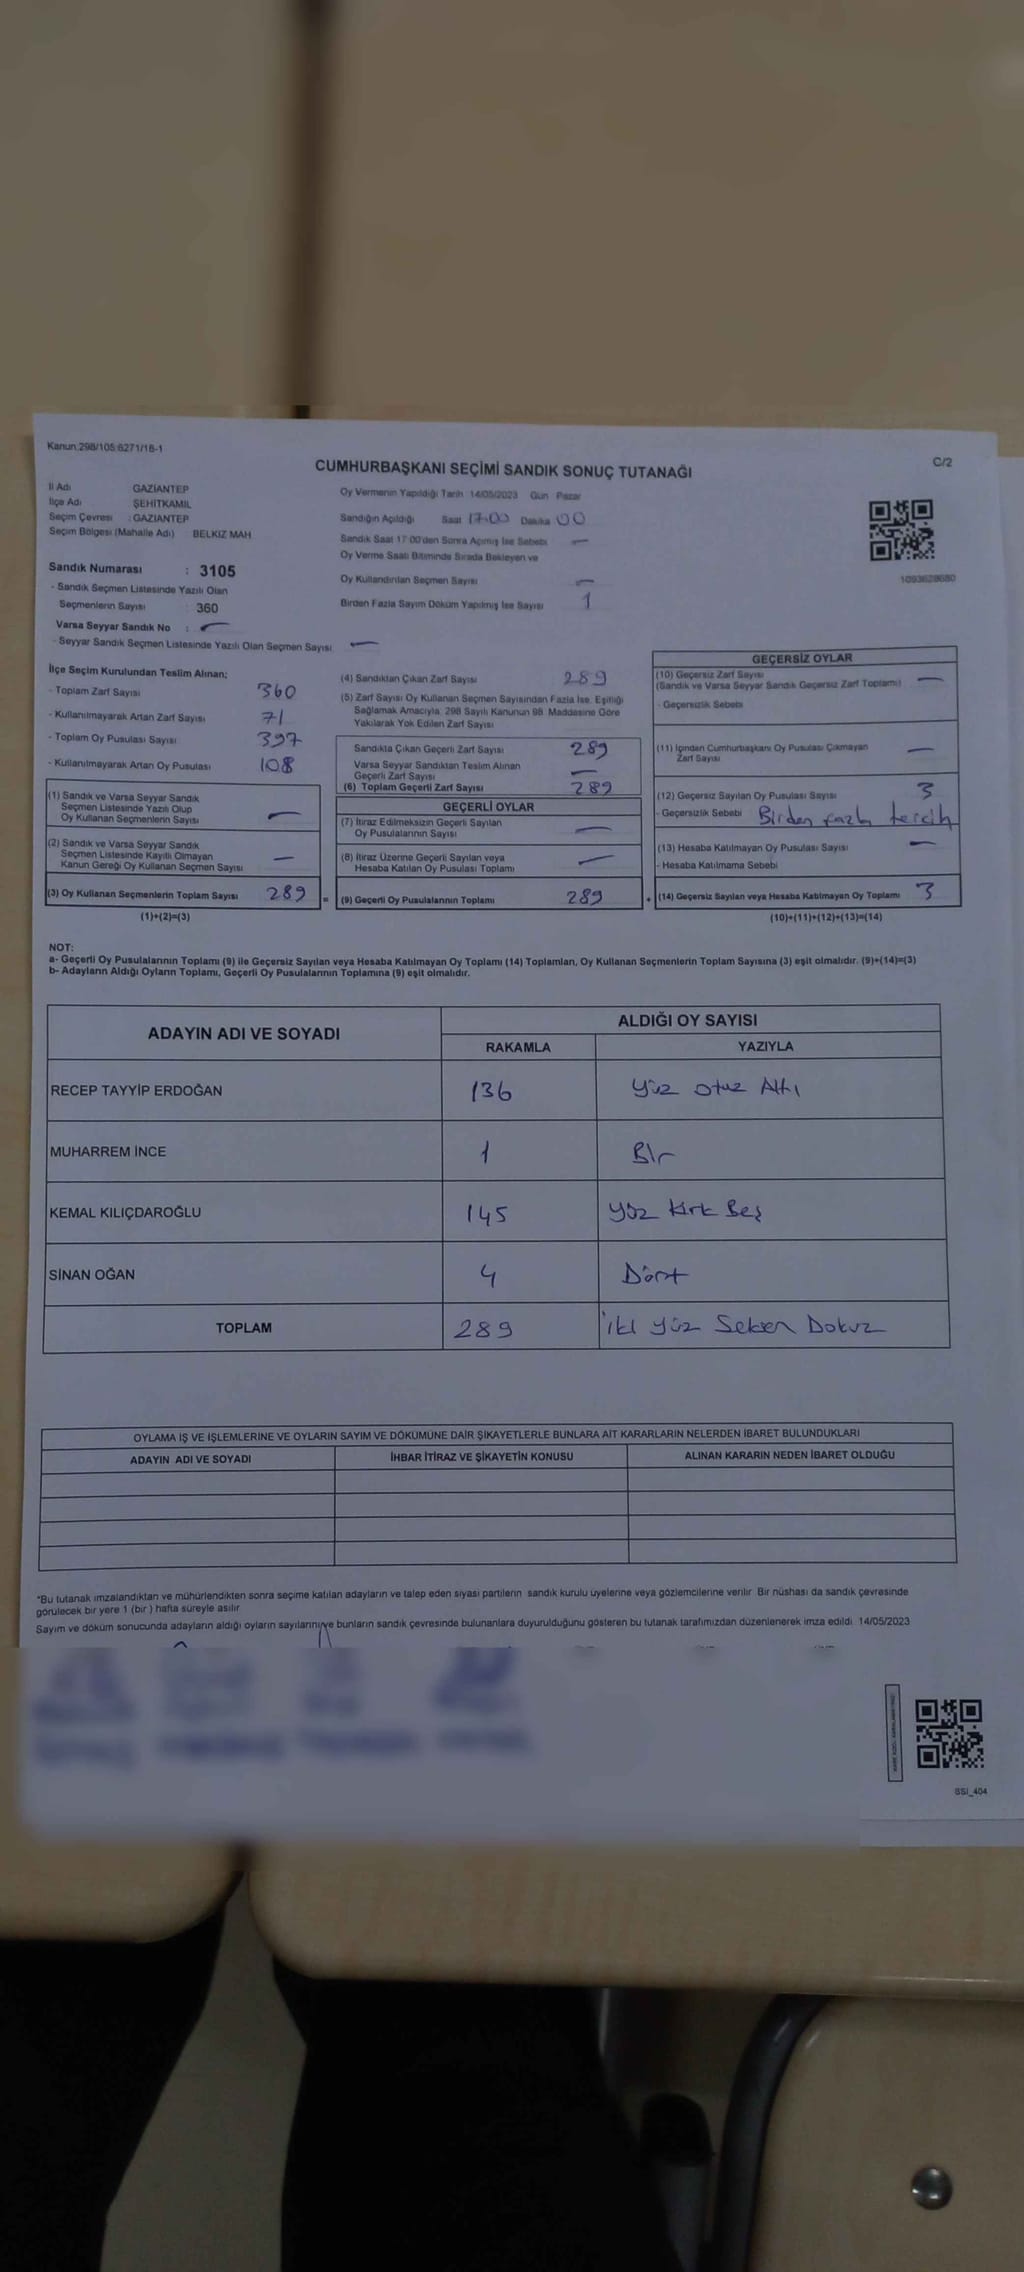 Kanun:298/105:6271/16-1
CUMHURBAŞKANI SEÇİMİ SANDIK SONUÇ TUTANAĞI
C/2
İl Adı GAZİANTEP
İlçe Adı ŞEHİTKAMİL
Seçim Çevresi : GAZİANTEP
Seçim Bölgesi (Mahalle Adı) BELKIZ MAH
Oy Vermenin Yapıldığı Tarih 14/05/2023 Gün Pazar
Sandığın Açıldığı Saat 17:00 Dakika 00
Sandık Saat 17:00'den Sonra Açılmış İse Sebebi —
Oy Verme Saati Bitiminde Sırada Bekleyen ve
Oy Kullandırılan Seçmen Sayısı —
Birden Fazla Sayım Döküm Yapılmış İse Sayısı 1
1093628680
Sandık Numarası : 3105
- Sandık Seçmen Listesinde Yazılı Olan
Seçmenlerin Sayısı : 360
Varsa Seyyar Sandık No : —
- Seyyar Sandık Seçmen Listesinde Yazılı Olan Seçmen Sayısı —
İlçe Seçim Kurulundan Teslim Alınan;
- Toplam Zarf Sayısı 360
- Kullanılmayarak Artan Zarf Sayısı 71
- Toplam Oy Pusulası Sayısı 397
- Kullanılmayarak Artan Oy Pusulası 108
(1) Sandık ve Varsa Seyyar Sandık
Seçmen Listesinde Yazılı Olup
Oy Kullanan Seçmenlerin Sayısı —
(2) Sandık ve Varsa Seyyar Sandık
Seçmen Listesinde Kayıtlı Olmayan
Kanun Gereği Oy Kullanan Seçmen Sayısı —
(3) Oy Kullanan Seçmenlerin Toplam Sayısı 289 =
(1)+(2)=(3)
(4) Sandıktan Çıkan Zarf Sayısı 289
(5) Zarf Sayısı Oy Kullanan Seçmen Sayısından Fazla İse, Eşitliği
Sağlamak Amacıyla, 298 Sayılı Kanunun 98. Maddesine Göre
Yakılarak Yok Edilen Zarf Sayısı
Sandıkta Çıkan Geçerli Zarf Sayısı 289
Varsa Seyyar Sandıktan Teslim Alınan
Geçerli Zarf Sayısı —
(6) Toplam Geçerli Zarf Sayısı 289
GEÇERLİ OYLAR
(7) İtiraz Edilmeksizin Geçerli Sayılan
Oy Pusulalarının Sayısı —
(8) İtiraz Üzerine Geçerli Sayılan veya
Hesaba Katılan Oy Pusulası Toplamı —
(9) Geçerli Oy Pusulalarının Toplamı 289 +
GEÇERSİZ OYLAR
(10) Geçersiz Zarf Sayısı
(Sandık ve Varsa Seyyar Sandık Geçersiz Zarf Toplamı) —
- Geçersizlik Sebebi
(11) İçinden Cumhurbaşkanı Oy Pusulası Çıkmayan
Zarf Sayısı —
(12) Geçersiz Sayılan Oy Pusulası Sayısı 3
- Geçersizlik Sebebi Birden fazla tercih
(13) Hesaba Katılmayan Oy Pusulası Sayısı —
- Hesaba Katılmama Sebebi
(14) Geçersiz Sayılan veya Hesaba Katılmayan Oy Toplamı 3
(10)+(11)+(12)+(13)=(14)
NOT:
a- Geçerli Oy Pusulalarının Toplamı (9) ile Geçersiz Sayılan veya Hesaba Katılmayan Oy Toplamı (14) Toplamları, Oy Kullanan Seçmenlerin Toplam Sayısına (3) eşit olmalıdır. (9)+(14)=(3)
b- Adayların Aldığı Oyların Toplamı, Geçerli Oy Pusulalarının Toplamına (9) eşit olmalıdır.
ADAYIN ADI VE SOYADI ALDIĞI OY SAYISI
RAKAMLA YAZIYLA
RECEP TAYYİP ERDOĞAN 136 Yüz otuz Altı
MUHARREM İNCE 1 Bir
KEMAL KILIÇDAROĞLU 145 Yüz Kırk Beş
SİNAN OĞAN 4 Dört
TOPLAM 289 İki Yüz Seksen Dokuz
OYLAMA İŞ VE İŞLEMLERİNE VE OYLARIN SAYIM VE DÖKÜMÜNE DAİR ŞİKAYETLERLE BUNLARA AİT KARARLARIN NELERDEN İBARET BULUNDUKLARI
ADAYIN ADI VE SOYADI İHBAR İTİRAZ VE ŞİKAYETİN KONUSU ALINAN KARARIN NEDEN İBARET OLDUĞU
*Bu tutanak imzalandıktan ve mühürlendikten sonra seçime katılan adayların ve talep eden siyasi partilerin sandık kurulu üyelerine veya gözlemcilerine verilir. Bir nüshası da sandık çevresinde
görülecek bir yere 1 (bir ) hafta süreyle asılır
Sayım ve döküm sonucunda adayların aldığı oyların sayılarını ve bunların sandık çevresinde bulunanlara duyurulduğunu gösteren bu tutanak tarafımızdan düzenlenerek imza edildi. 14/05/2023
SSI_404